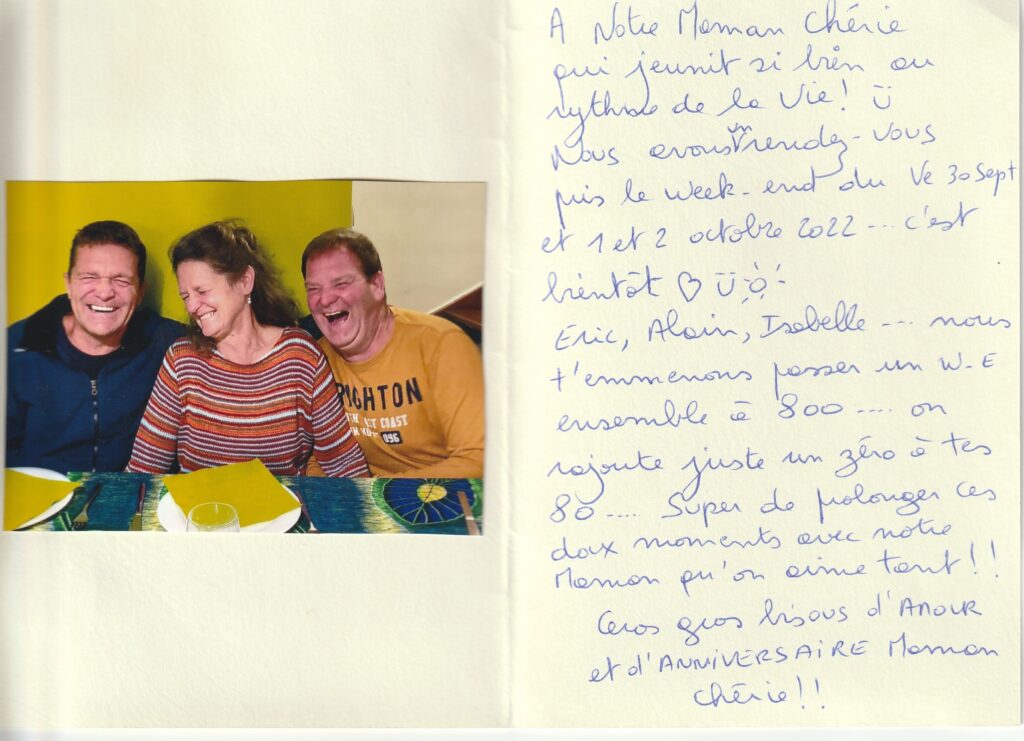 RIGHTON
ST COAST
096
A Notre Maman Chérie
qui jeunit si bien au
rythme de la Vie! ü
Nous avons un rendez-vous
puis le week-end du Ve 30 Sept
et 1 et 2 octobre 2022 --- c'est
bientôt ♡ ü
Eric, Alain, Isabelle --- nous
t'emmenons passer un W-E
ensemble à 800 .... on
rajoute juste un zéro à tes
80 .... Super de prolonger ces
doux moments avec notre
Maman qu'on aime tant!!
Gros gros bisous d'AMOUR
et d'ANNIVERSAIRE Maman
Chérie!!